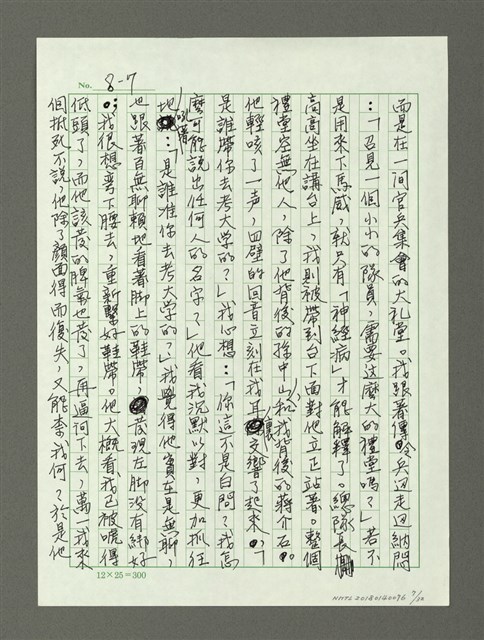 No. 8-7
而是在一间官兵集會的大礼堂。我跟著傳令兵边走边納悶
：「召見一個小小的隊員，需要这麼大的禮堂嗎？」若不
是用來下馬威，就只有「神經病」才能解釋了。總隊長
高高坐在講台上，我則被帶到台下面對他立正站著。整個
禮堂空無他人，除了他背後的孫中山和我背後的蔣介石。
他輕咳了一声，四壁的回音立刻在我耳裏交響了起來。「
是誰帶你去考大学的？」我心想：「你這不是白問？我怎
麼可能說出任何人的名字？」他看我沉默以對，更加抓狂
地吼着：「是誰准你去考大学的？」我覺得他實在是無聊，
也跟著百無聊賴地看著脚上的鞋帶，發現左脚没有綁好
。我很想彎下腰去，重新繫好鞋帶。他大概看我已被唬得
低頭了，而他該發的脾氣也發了，再逼问下去，萬一我來
個抵死不説，他除了顏面得而復失，又能奈我何？於是他
12×25=300
NMTL20180160096 7/22